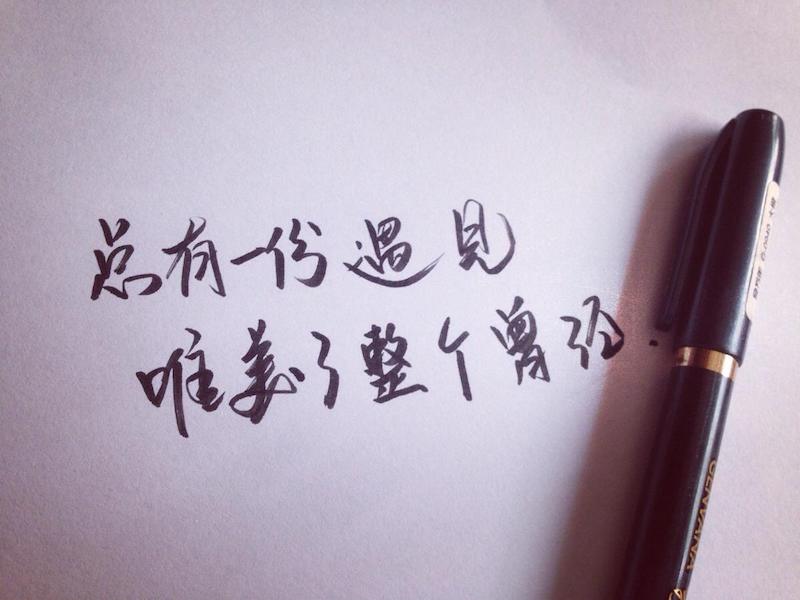 总有一份遇见
唯美了整个曾经.
GENVANA